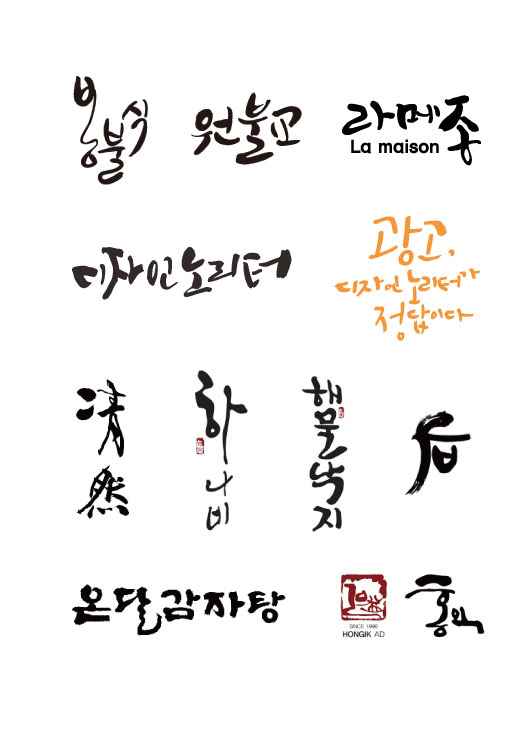 봉불식
원불교
라메종
La maison
디자인노리터
광고,
디자인 노리터가
정답이다
清然
하나비
해물낙지
온달감자탕
SINCE 1996
HONGIK AD
홍익